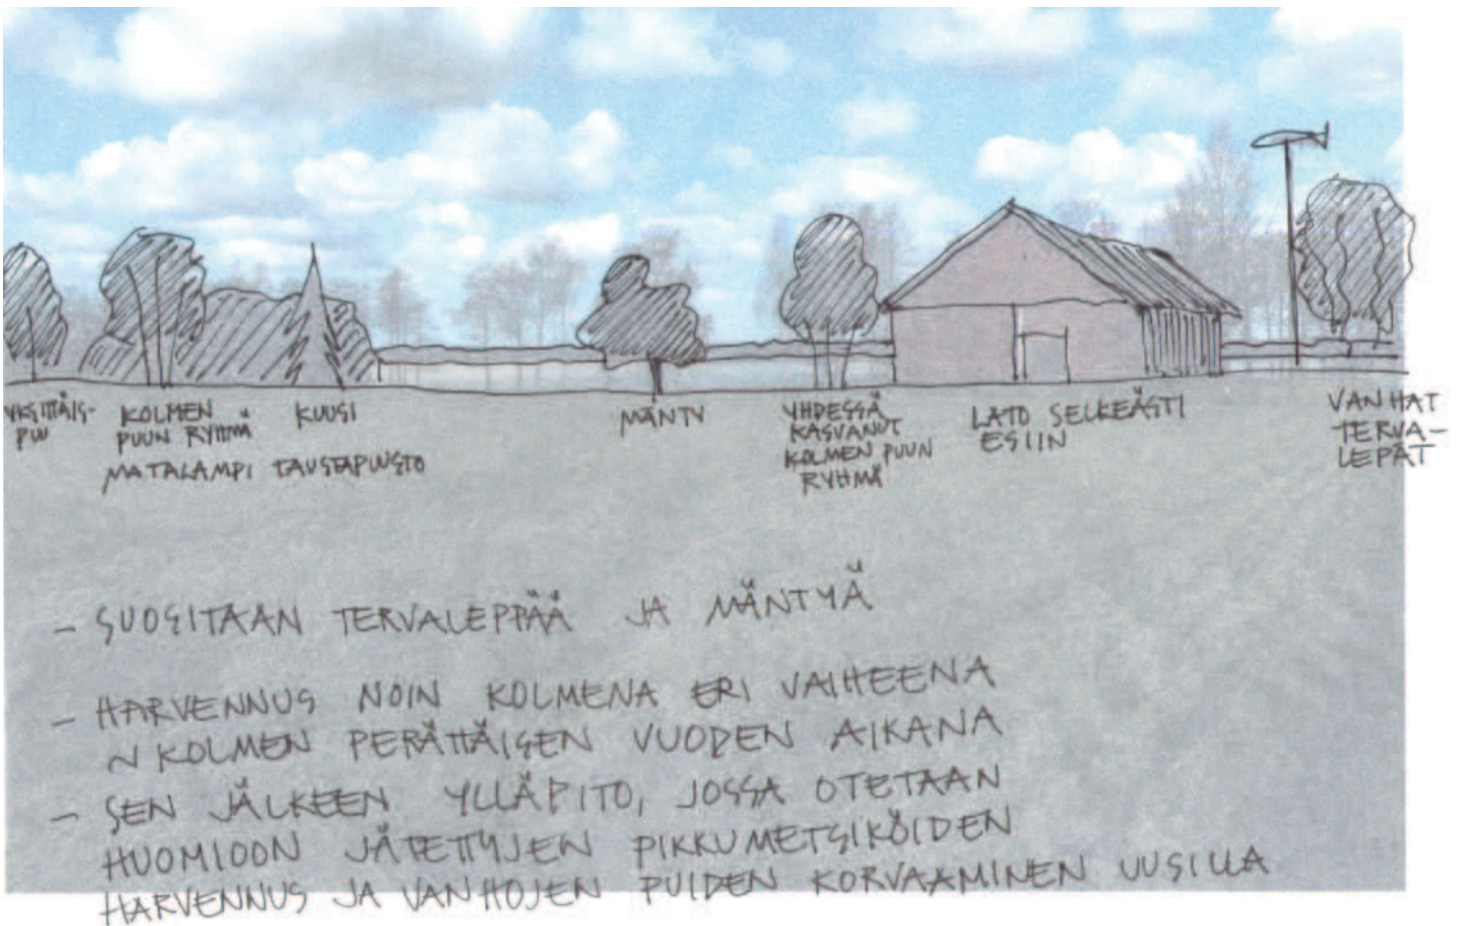 YKSITTÄIS-
PUU
KOLMEN
PUUN RYHMÄ
KUUSI
MATALAMPI TAUSTAPUUSTO
MÄNTY
YHDESSÄ
KASVANUT
KOLMEN PUUN
RYHMÄ
LATO SELKEÄSTI
ESIIN
VANHAT
TERVA-
LEPÄT
- SUOSITAAN TERVALEPPÄÄ JA MÄNTYÄ
- HARVENNUS NOIN KOLMENA ERI VAIHEENA
~ KOLMEN PERÄTTÄISEN VUODEN AIKANA
- SEN JÄLKEEN YLLÄPITO, JOSSA OTETAAN
HUOMIOON JÄTETTYJEN PIKKUMETSIKÖIDEN
HARVENNUS JA VANHOJEN PUIDEN KORVAAMINEN UUSILLA